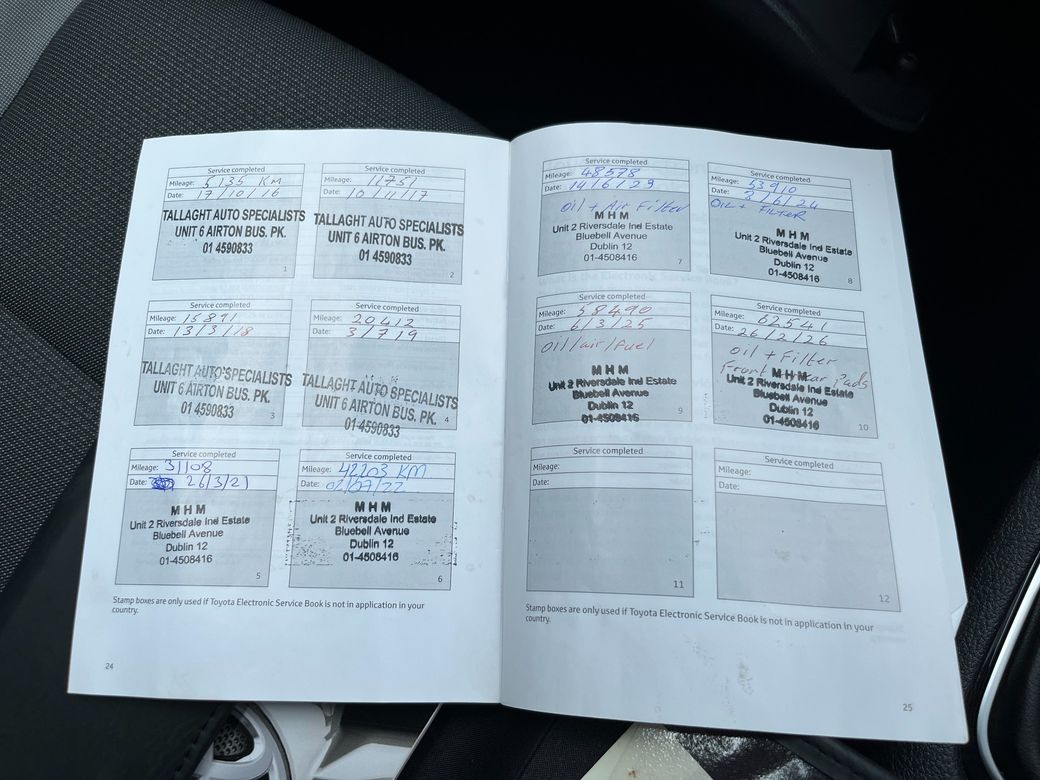 Service completed
Mileage: 5135 KM
Date: 17/10/16
TALLAGHT AUTO SPECIALISTS
UNIT 6 AIRTON BUS. PK.
01 4590833
1
Service completed
Mileage: 11751
Date: 10/11/17
TALLAGHT AUTO SPECIALISTS
UNIT 6 AIRTON BUS. PK.
01 4590833
2
Service completed
Mileage: 15891
Date: 13/3/18
TALLAGHT AUTO SPECIALISTS
UNIT 6 AIRTON BUS. PK.
01 4590833
3
Service completed
Mileage: 20412
Date: 3/7/19
TALLAGHT AUTO SPECIALISTS
UNIT 6 AIRTON BUS. PK.
01-4590833
4
Service completed
Mileage: 31108
Date: 26/3/21
M H M
Unit 2 Riversdale Ind Estate
Bluebell Avenue
Dublin 12
01-4508416
5
Service completed
Mileage: 42203 KM
Date: 02/07/22
M H M
Unit 2 Riversdale Ind Estate
Bluebell Avenue
Dublin 12
01-4508416
6
Stamp boxes are only used if Toyota Electronic Service Book is not in application in your
country.
24
Service completed
Mileage: 48578
Date: 14/6/23
Oil + Air Filter
M H M
Unit 2 Riversdale Ind Estate
Bluebell Avenue
Dublin 12
01-4508416
7
Service completed
Mileage: 53910
Date: 2/6/24
OIL + FILTER
M H M
Unit 2 Riversdale Ind Estate
Bluebell Avenue
Dublin 12
01-4508416
8
Service completed
Mileage: 58490
Date: 6/3/25
Oil/air/fuel
M H M
Unit 2 Riversdale Ind Estate
Bluebell Avenue
Dublin 12
01-4508416
9
Service completed
Mileage: 62541
Date: 26/2/26
Oil + Filter
Front Pads
M H M
Unit 2 Riversdale Ind Estate
Bluebell Avenue
Dublin 12
01-4508416
10
Service completed
Mileage:
Date:
11
Service completed
Mileage:
Date:
12
Stamp boxes are only used if Toyota Electronic Service Book is not in application in your
country.
25